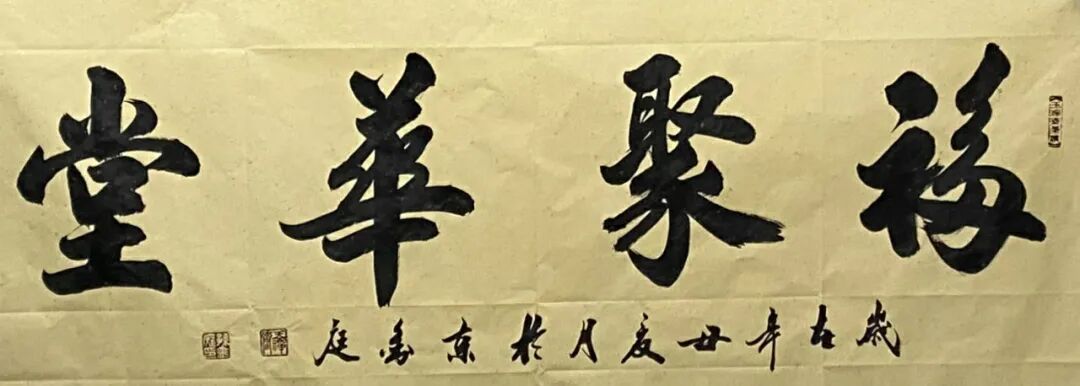 福聚華堂
歲在辛丑夏月於京畿庭